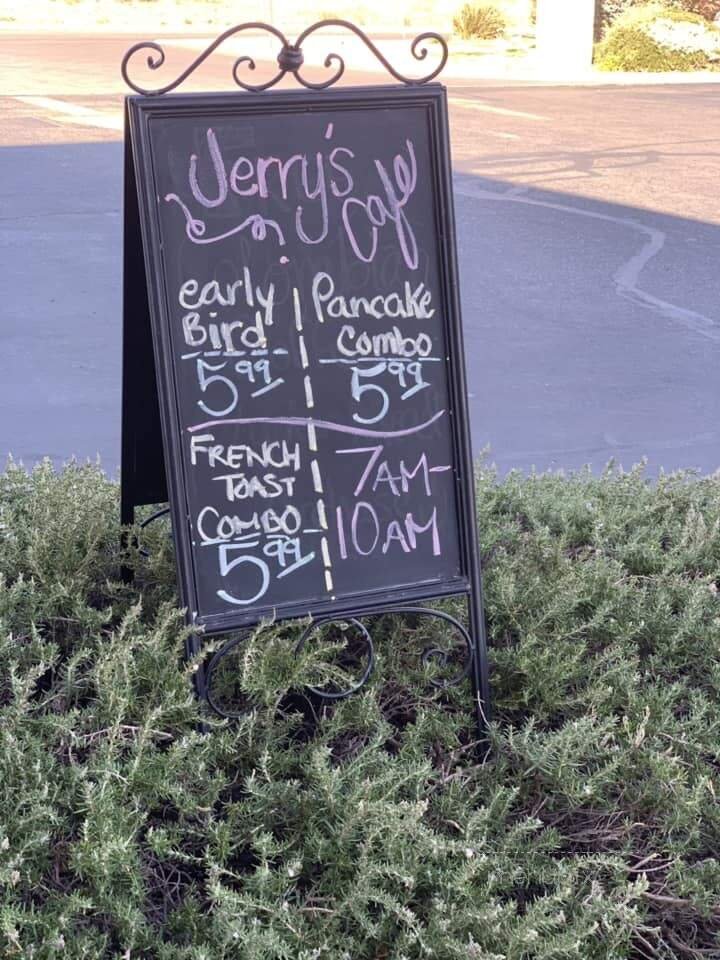 Jerry's
Café
early
Bird
5.99
Pancake
Combo
5.99
FRENCH
TOAST
COMBO
5.99
7AM-
10AM